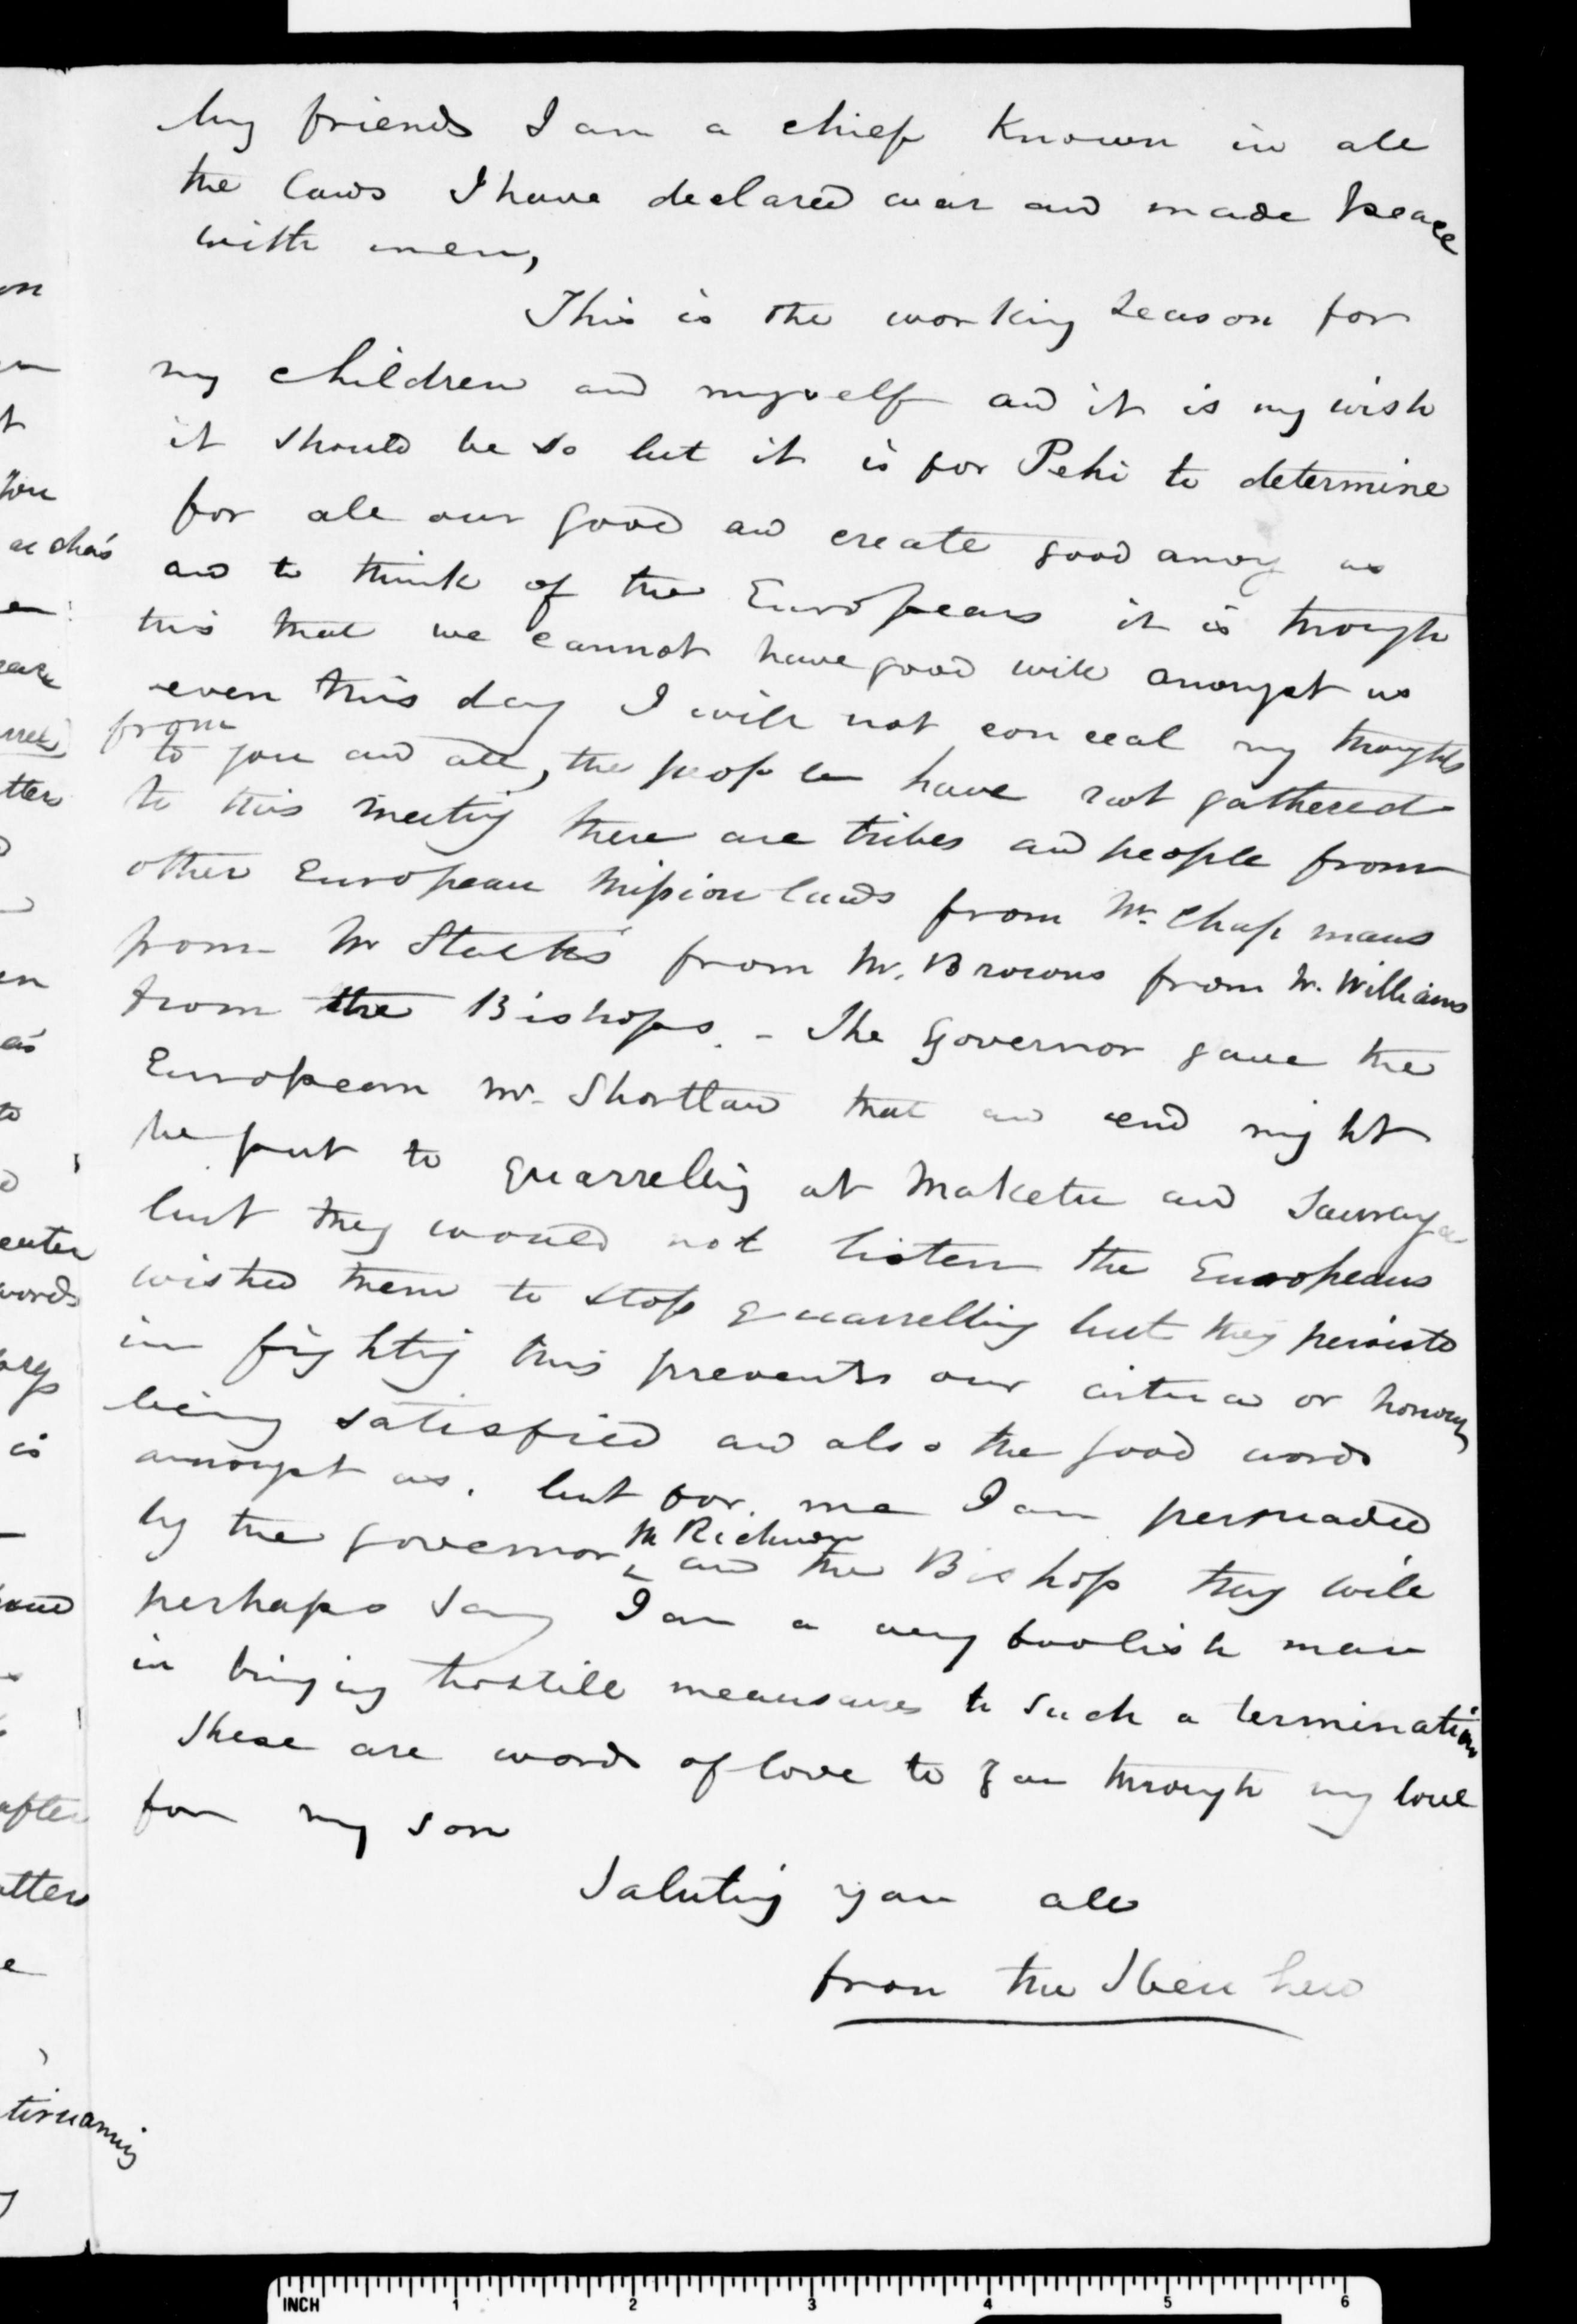 My friends I am a chief Known in all
the laws I have declared war and made peace
with men,
This is the working season for
my children and myself and it is my wish
it should be so but it is for Pehi to determine
for all our good and create good among us
and to think of the Europeans it is through
this that we cannot have good will amongst us
even this day I will not conceal my thoughts
from
to you and all, the people have not gathered
to this meeting there are tribes and people from
other European Mission lands from Mr. Chapmans
from Mr Stacks from Mr. Browns from Mr. Williams
from the Bishops. - The Governor gave the
European Mr. Shortland that an end might
be put to quarrelling at Maketu and Tauranga
but they would not listen the Europeans
wished them to stop quarrelling but they persisted
in fighting this prevents our or honour
being satisfied and also the good words
amongst us. but for me I am persuaded
by the governor, Mr Richmond and the Bishop they will
perhaps say I am a very foolish man
in bringing hostile measures to such a termination
These are words of love to you through my love
for my son
Saluting you all
from the
INCH 1 2 3 4 5 6